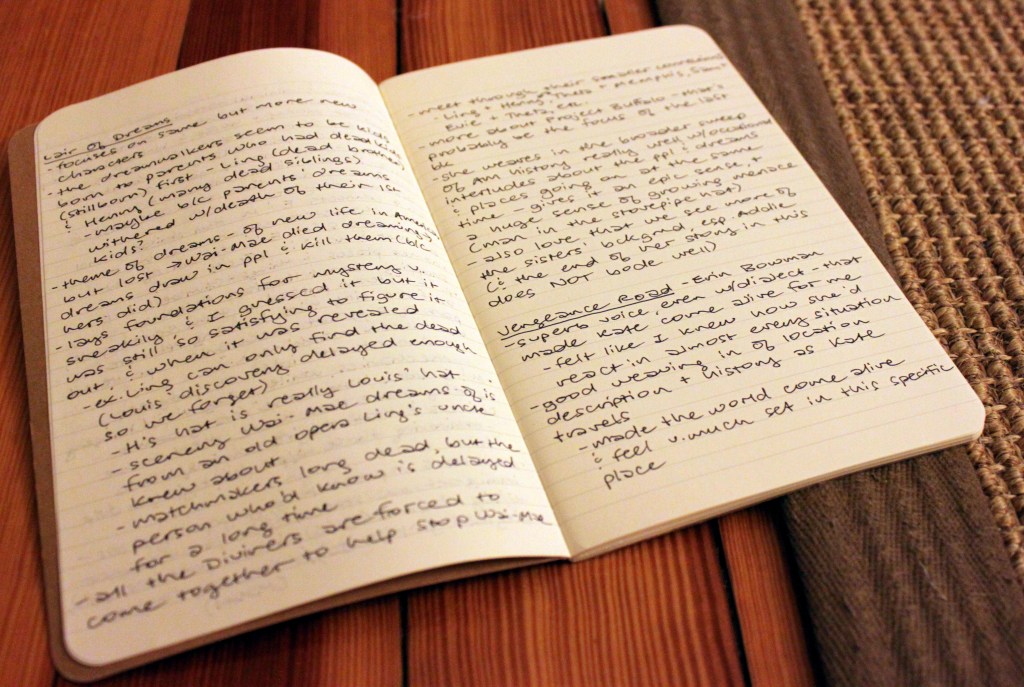 Lair of Dreams
- focuses on same but more new
characters
- the dreamwalkers seem to be kids
born to parents who had dead kids
(stillborn) first - Ling (dead brother)
& Henry (many dead siblings)
- maybe b/c parents' dreams
withered w/death of their 1st
kids?
- theme of dreams - of new life in America
but lost → Wai-Mae died dreaming, &
dreams draw in ppl & kill them (b/c
hers did)
- lays foundations for mystery v.
sneakily & I guessed it but it
was still so satisfying to figure it
out & when it was revealed
- ex. Ling can only find the dead
(Louis' discovery delayed enough
so we forget)
- H's hat is really Louis' hat
- scenery Wai-Mae dreams of is
from an old opera Ling's uncle
knew about
- matchmakers long dead, but the
person who'd know is delayed
for a long time
- all the Diviners are forced to
come together to help stop Wai-Mae
- meet through their smaller connections
- Ling + Henry, Theta + Memphis, Sam +
Evie + Theta, etc.
- more about Project Buffalo - that's
probably be the focus of the last
bk
- she weaves in the broader sweep
of Am history really well, w/occasional
interludes about the ppl & dreams
& places going on at the same
time - gives it an epic sense, &
a huge sense of growing menace
(man in the stovepipe hat)
- also love that we see more of
the sisters' bckgrnd, esp. Addie
(& the end of her story in this
does NOT bode well)
Vengeance Road - Erin Bowman
- superb voice, even w/dialect - that
made Kate come alive for me
- felt like I knew how she'd
react in almost every situation
- good weaving in of location
description + history as Kate
travels
- made the world come alive
& feel v. much set in this specific
place